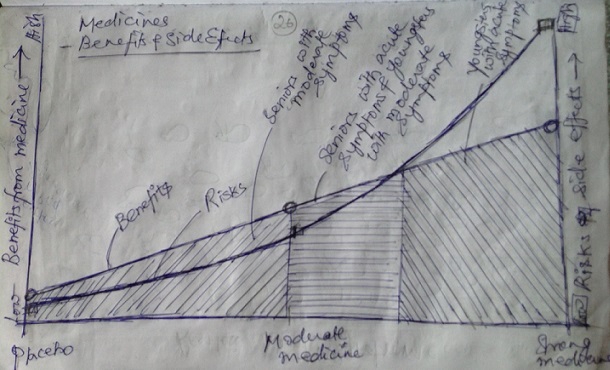 Medicines
- Benefits & Side Effects
26
High
Benefits from medicine →
Low
Benefits
Risks
Seniors with
moderate
symptoms
Seniors with acute
symptoms & youngsters
with moderate
symptoms
youngsters
with acute
symptoms
High
Risks of side effects →
Low
placebo
Moderate
medicine
Strong
medicine